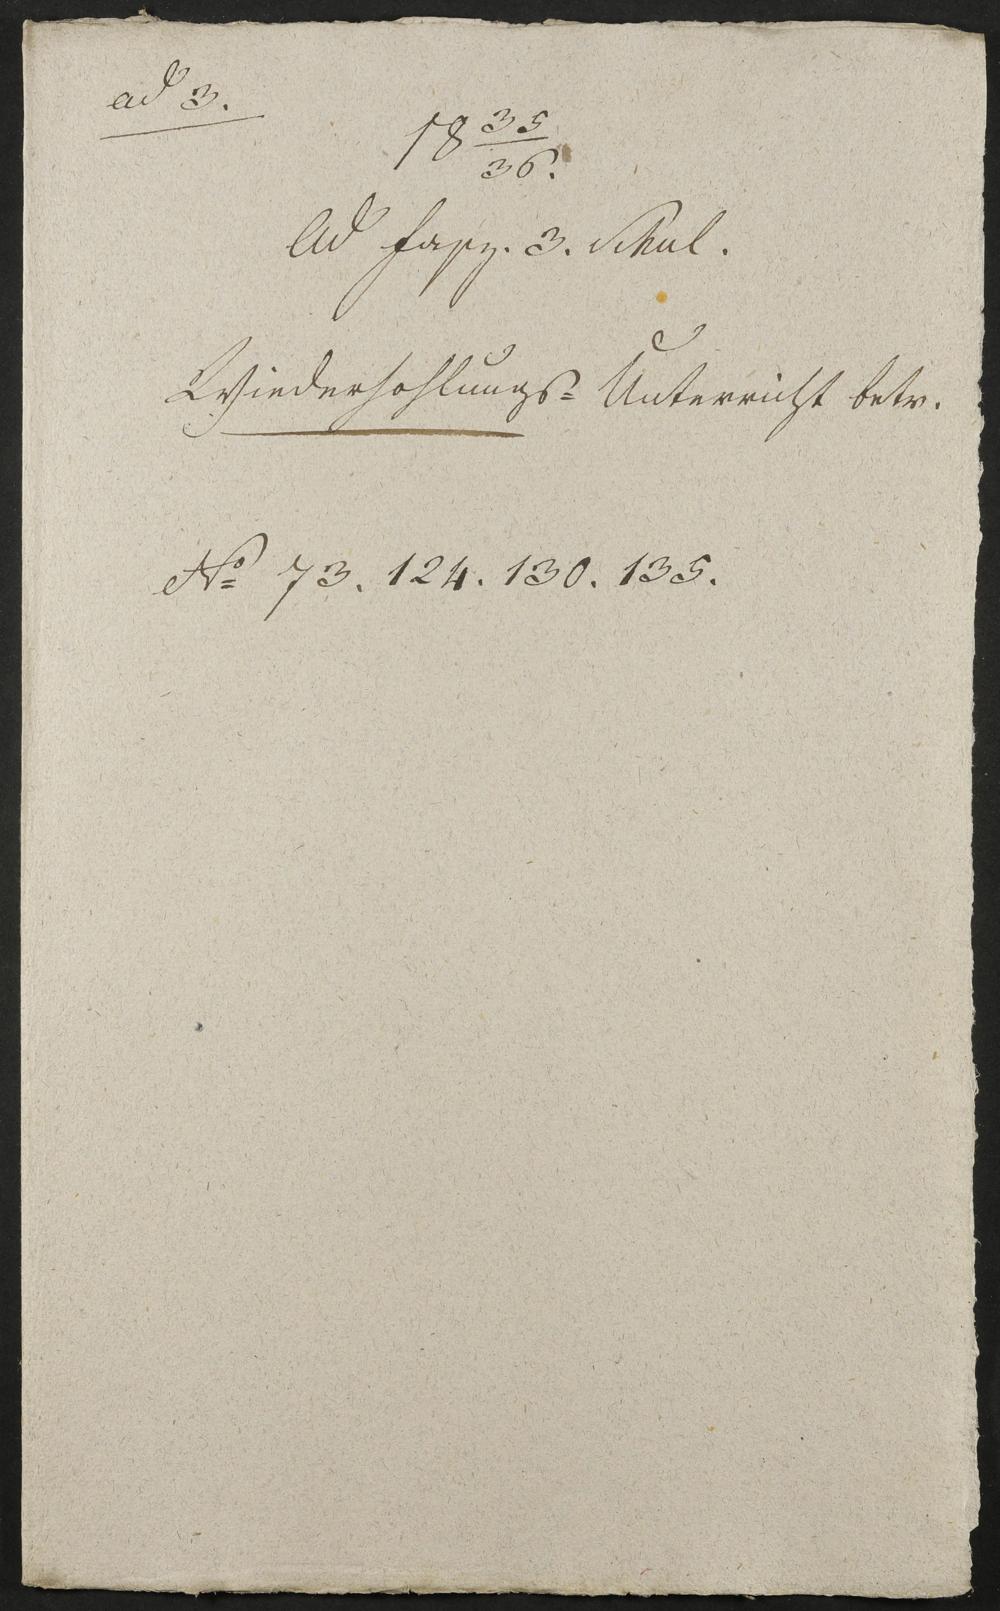 ad 3.
18 35/36.
Ad Fasz. 3. Schul.
Wiederhohlungs- Unterricht betr.
No 73. 124. 130. 135.